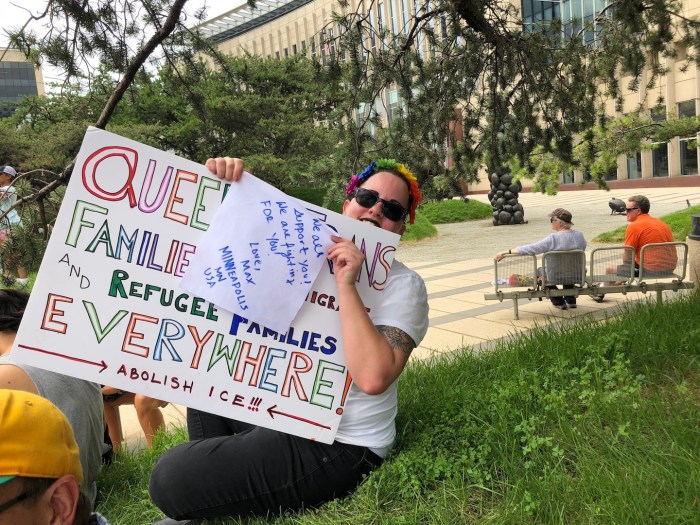 QUEE ANS
FAMILIE
AND MIGRA
REFUGEE FAMILIES
EVERYWHERE!
ABOLISH ICE!!!
We all
support you!
We are fighting
FOR YOU!
Love,
MAX
MINNEAPOLIS
MN
USA